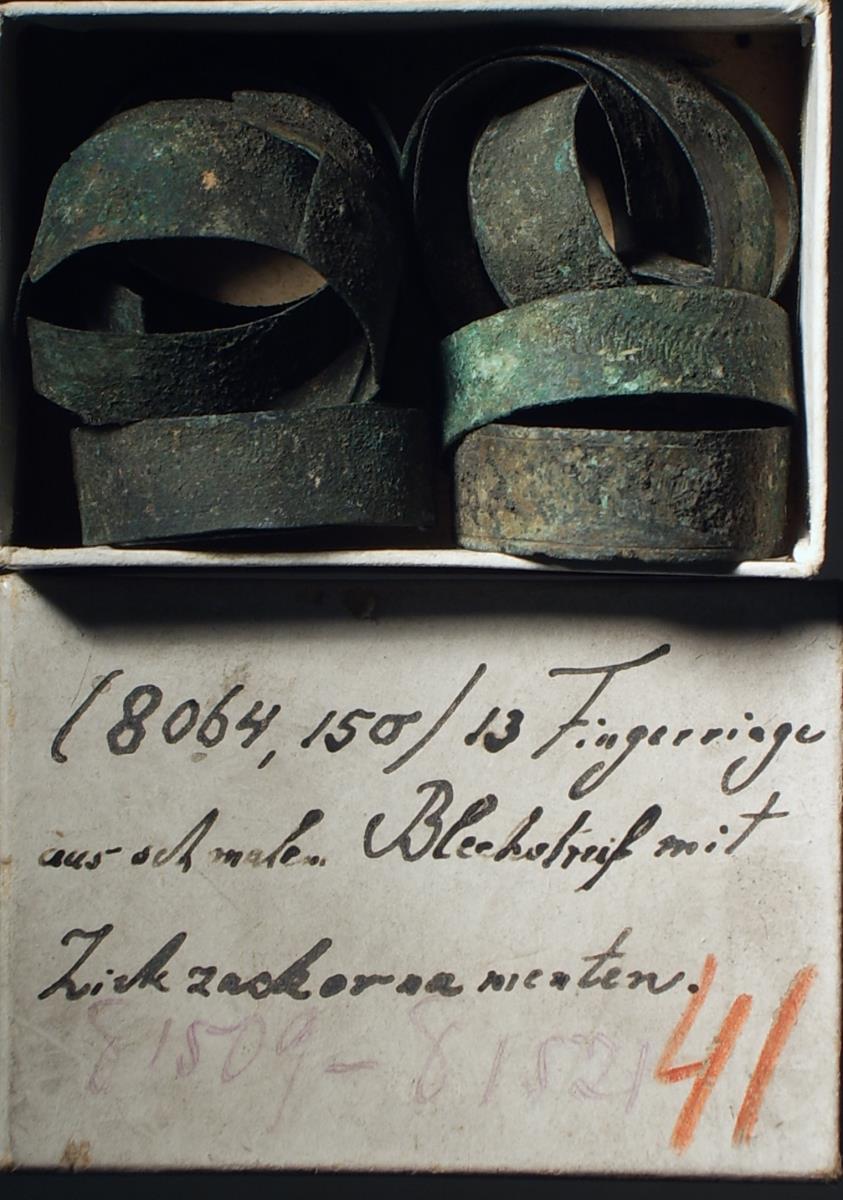 (8064, 150) 13 Fingerringe
aus schmalem Blechstreif mit
Zickzackornamenten.
81509 - 81521
41